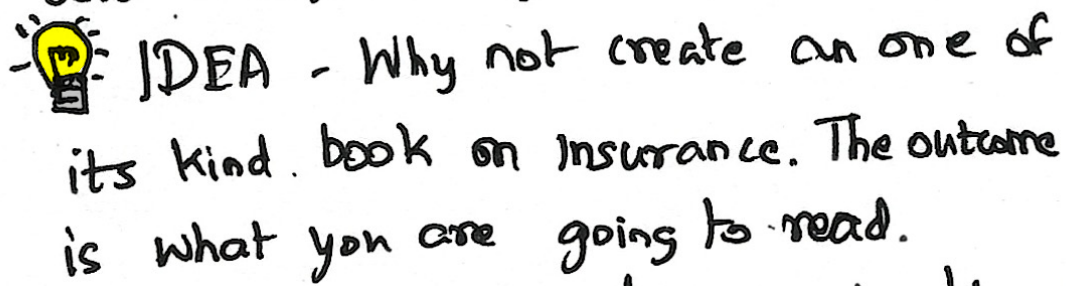 IDEA - Why not create an one of
its kind. book on Insurance. The outcome
is what you are going to read.